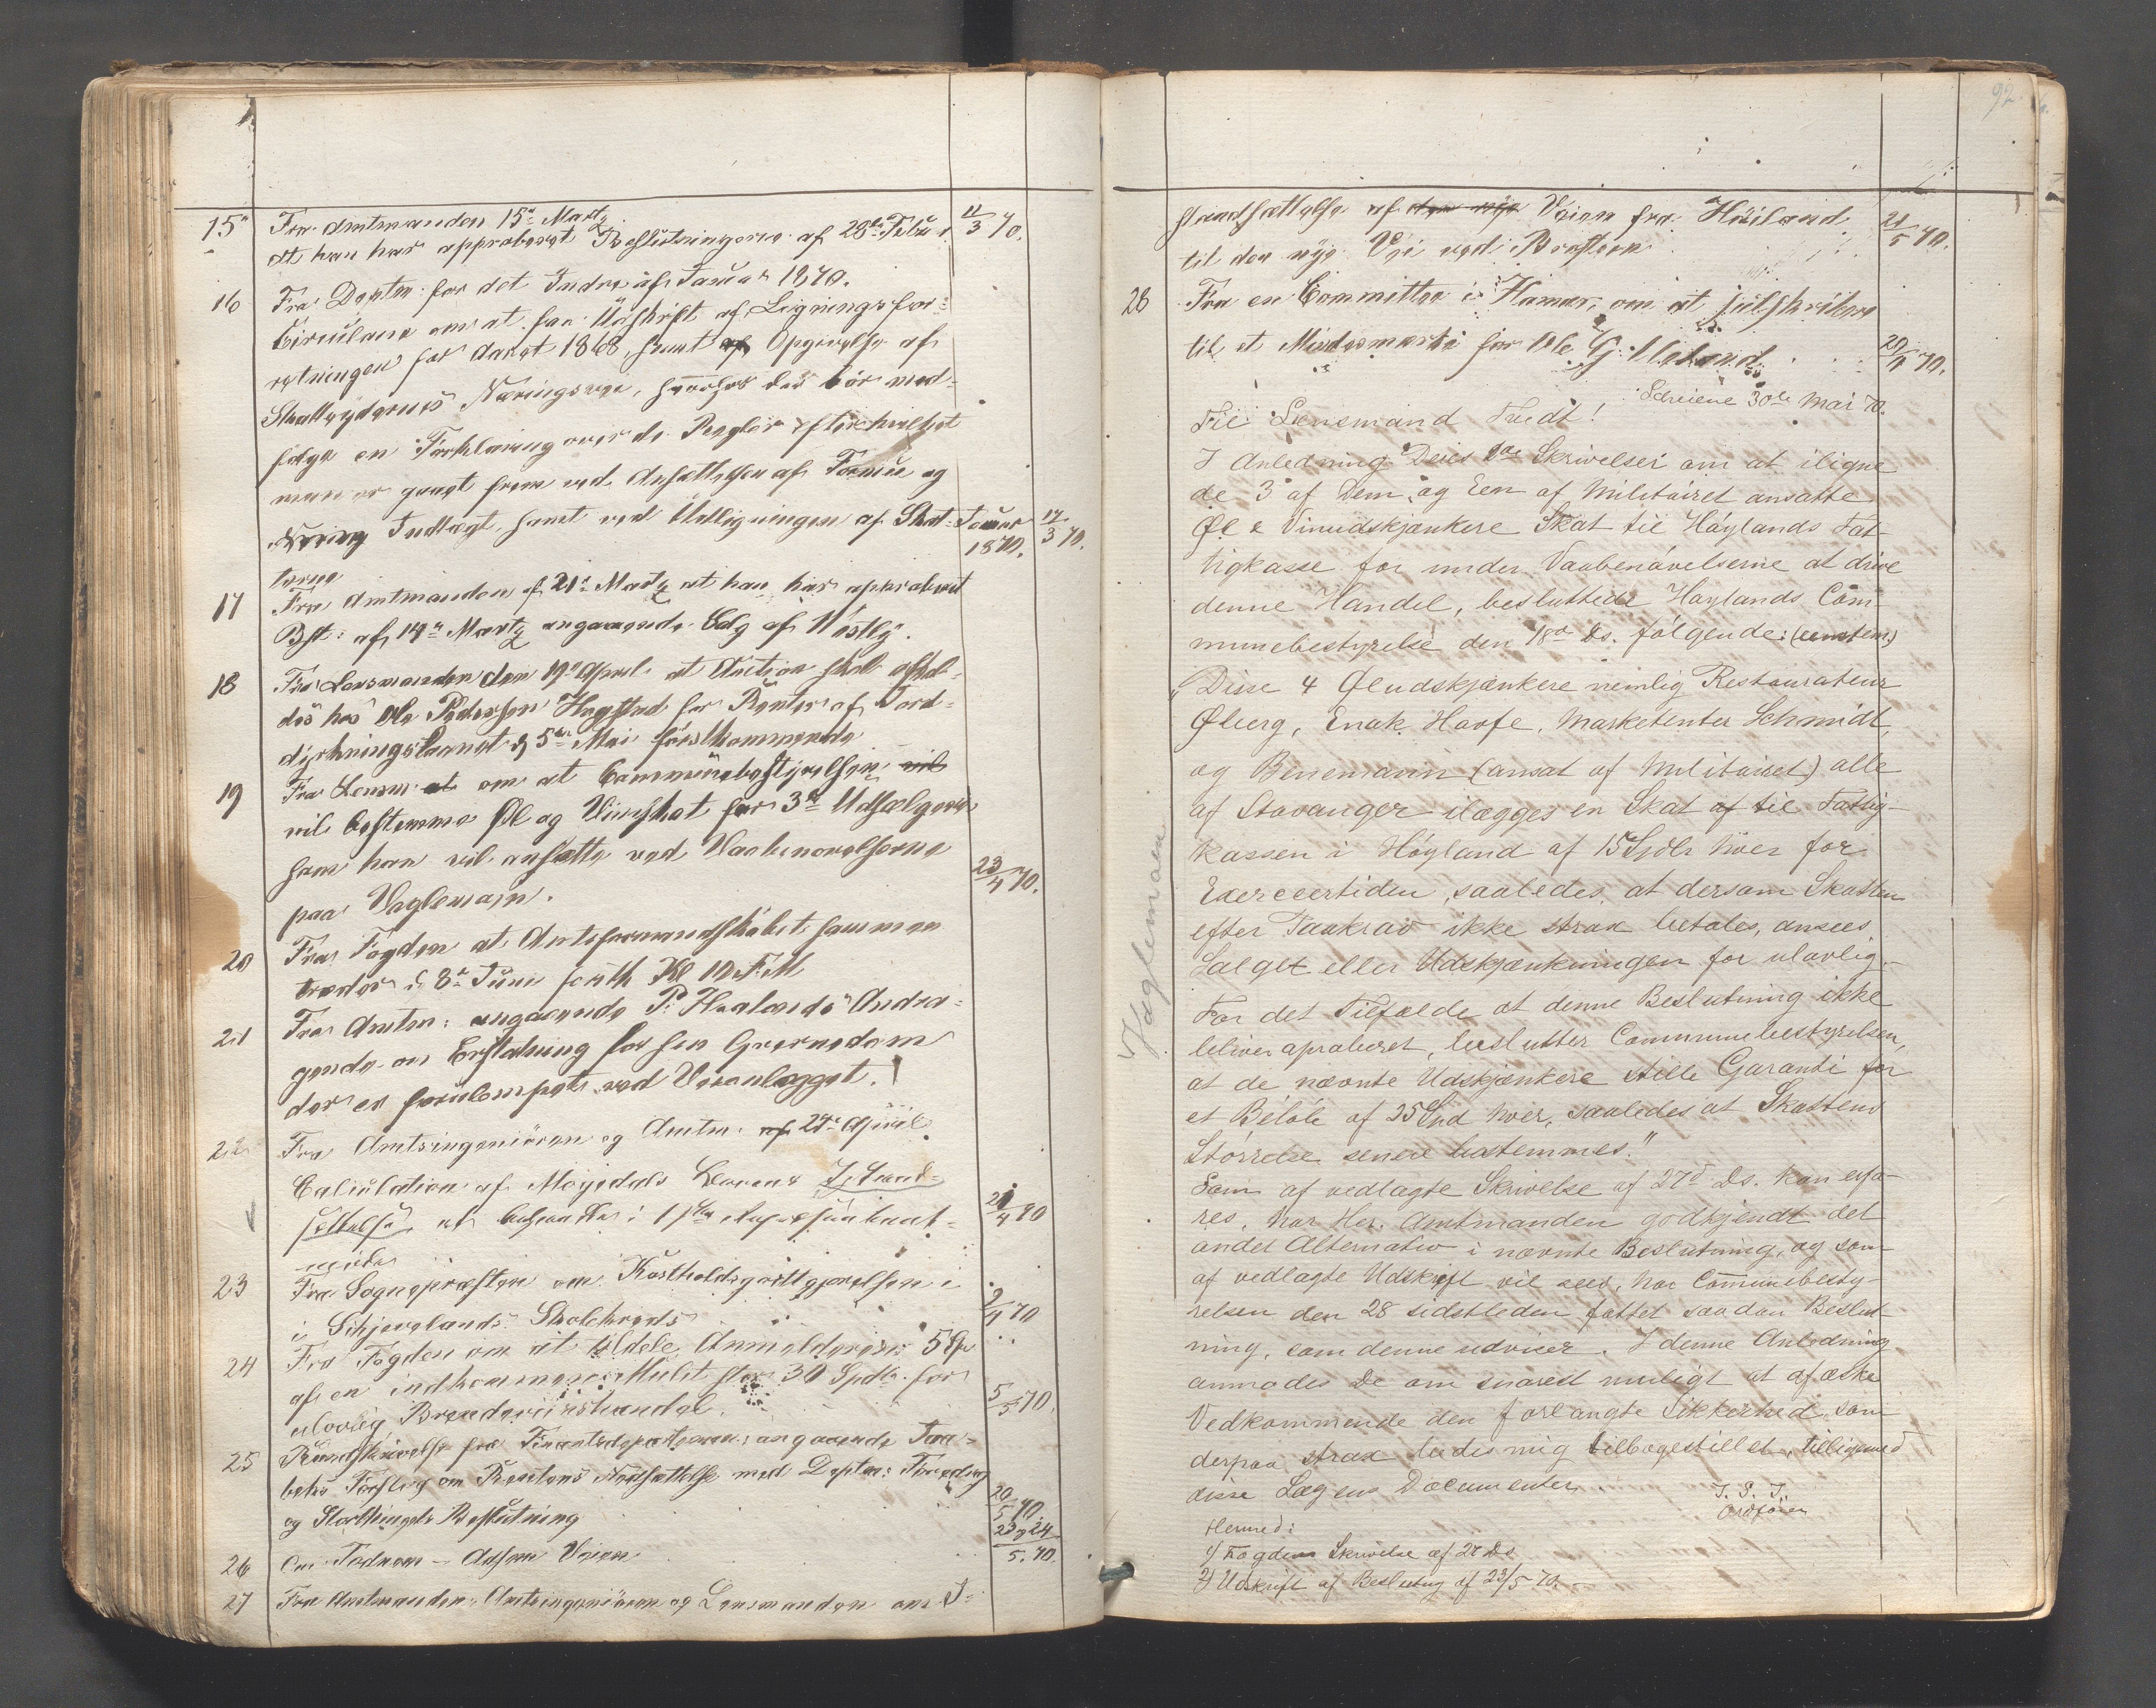 15 Fra Amtmanden 15de Marts
at han har approberet Beslutningerne af 28de Febru 11/3 70.
16 Fra Deptm: for det Indre af Januar 1870.
Circulaire om at faa Udskrift af Ligningsfor-
retningen for Aaret 1868, samt Opgivelse af
Skatteydernes Næringsvei, hvorhos der bör med-
følge en Forklaring over de Regler efter hvilket
man er gaaet frem ved Ansættelsen af Formue og
Næring Indtægt, samt ved Udligningen af Skat- Januar 17/3 70.
terne 1870.
17 Fra Amtmanden af 21de Marts at han har approberet
Bst: af 14de Marts angaaende Salg af
18 Fra Lensmanden den 19de April at Auction skal afhol-
des hos Ole Pedersen Hogstad for Renter af Jord-
dyrkningslaanet d 5te Mai förstkommende
19 Fra Lensm: om at Communebestyrelsen
vil bestemme Øl og Vinskat for 3de Udsælgere
som han vil ansætte ved Vaabenøvelserne
paa Vaglemoen. 23/4 70.
20 Fra Fogden at Amtsformandskabet sammen
træder d 8de Juni Kl 10 F.M
21 Fra Amtm: angaaende P. Haalands Andra-
gende om Erstatning for sin Qværnedam
der er ved Veianlægget.
22 Fra Amtsingeniören og Amtm: af 24de April
Calculation af Elvens Istand-
sættelse at
23 Fra Sognepræsten om Kostholdsgodtgjørelsen i
i Skjævelands Skolekreds 70
24 Fra Fogden om at tildele Anmelderne 5 Sp
af en indkommen Mulct stor 30 Spdlr. for
ulovlig Brændeviinshandel. 5/5 70.
25 Rundskrivelse fra Finantsdepartem: angaaende
Forslag om Rentens Nedsættelse med Deptm:
og Storthingets Beslutning 20/5 70.
26 Om Veien 5. 70.
27 Fra Amtmanden, Amtsingeniören og Lensmanden om I-
92
standsættelse af den nye Veien fra Höiland 21/5 70.
til den nye Vei ved
28 Fra en Committee i Hamar, om at subskribere
til et Mindesmærke for Ole G. Ueland 70.
30te Mai 70.
Til Lensmand Tvedt!
I Anledning Deres Skrivelser om at iligne
de 3 af Dem, og Een af Militairet ansatte
Øl & Vinudskjænkere Skat til Høylands Fat-
tigkasse for under Vaabenøvelserne at drive
denne Handel, besluttede Høylands Com-
munebestyrelse den 18de Ds. følgende: (eenstem)
"Disse 4 Øludskjænkere nemlig Restaurateur
Øberg, Enak Hovfe, Marketenter Schmidt,
og Benemann (ansat af Militairet) alle
af Stavanger ilægges en Skat af til Fattig-
kassen i Høyland af 15 Spdlr hver for
Exerceertiden, saaledes, at dersom Skatten
efter Paakrav ikke strax betales, ansees
Salget eller Udskjænkningen for ulovlig.-
For det Tilfælde at denne Beslutning ikke
bliver aproberet, beslutter Communebestyrelsen,
at de nævnte Udskjænkere stille Garanti for
et Beløb af 25 Spd hver, saaledes at Skattens
Størrelse senere bestemmes."
Som af vedlagte Skrivelse af 27de Ds. kan erfa-
res, har Hr. Amtmanden godkjendt det
andet Alternativ i nævnte Beslutning, og som
af vedlagte Udskrift vil sees, har Communebesty-
relsen den 28 sidstleden fattet saadan Beslut-
ning, som denne udviser. I denne Anledning
anmodes De om snarest muligt at afæske
Vedkommende den forlangte Sikkerhed, som
derpaa strax bedes mig tilbagestillet, tilligemed
disse Sagens Documenter.
Ordfører
Hermed:
1/ Fogdens Skrivelse af 28 Ds
2/ Udskrift af Beslutng af 23/5 70.
Vaglemoen